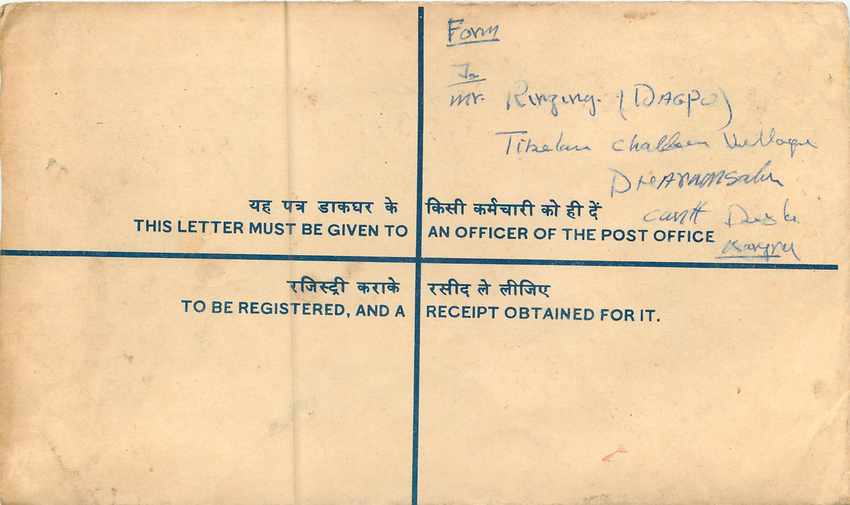 Form
To
Mr. Rinzing. (DAGPO)
Tibetan Village
Cantt
यह पत्र डाकघर के किसी कर्मचारी को ही दें
THIS LETTER MUST BE GIVEN TO AN OFFICER OF THE POST OFFICE
रजिस्ट्री कराके रसीद ले लीजिए
TO BE REGISTERED, AND A RECEIPT OBTAINED FOR IT.